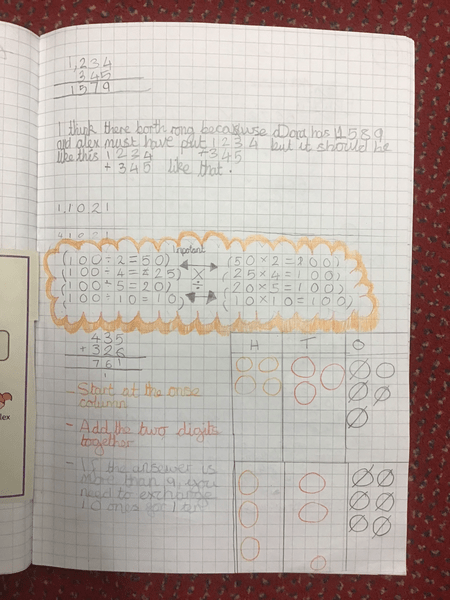 1,234
345
1579
I think there borth rong becauase Dora has 1589
and alex must have put 1234 but it should be
like this 1234 +345
+ 345 like that.
1,1021
Inpotant
(100÷2=50) (50×2=100)
(100÷4=25) × (25×4=100)
(100÷5=20) ÷ (20×5=100)
(100÷10=10) (10×10=100)
435
+ 326
761
1
H T O
- Start at the onse
column
- Add the two digits
together
- If the answer is
more than 9, you
need to exchange
10 ones for 1 on
lex